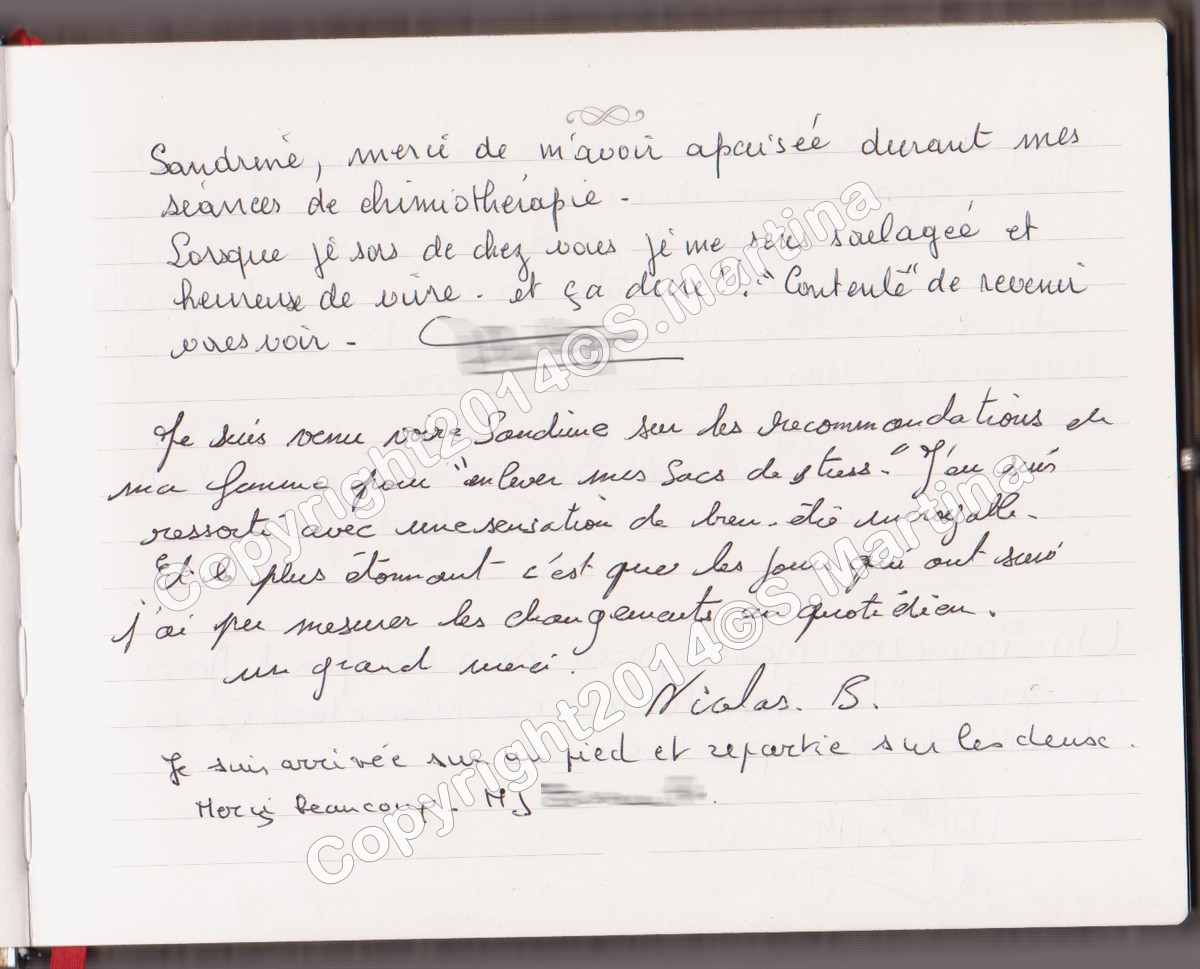 Sandrine, merci de m'avoir apaisée durant mes
séances de chimiothérapie.
Lorsque je sors de chez vous je me sens soulagée et
heureuse de vivre. et ça dure ! "Contente" de revenir
vous voir -
Je suis venu voir Sandrine sur les recommandations de
ma femme pour "enlever mes sacs de stress." J'en suis
ressorti avec une sensation de bien-être incroyable.
Et le plus étonnant c'est que les jours qui ont suivi
j'ai pu mesurer les changements au quotidien.
un grand merci.
Nicolas. B.
Je suis arrivée sur un pied et repartie sur les deux.
Merci Beaucoup. MJ
Copyright2014©S.Martina
Copyright2014©S.Martina